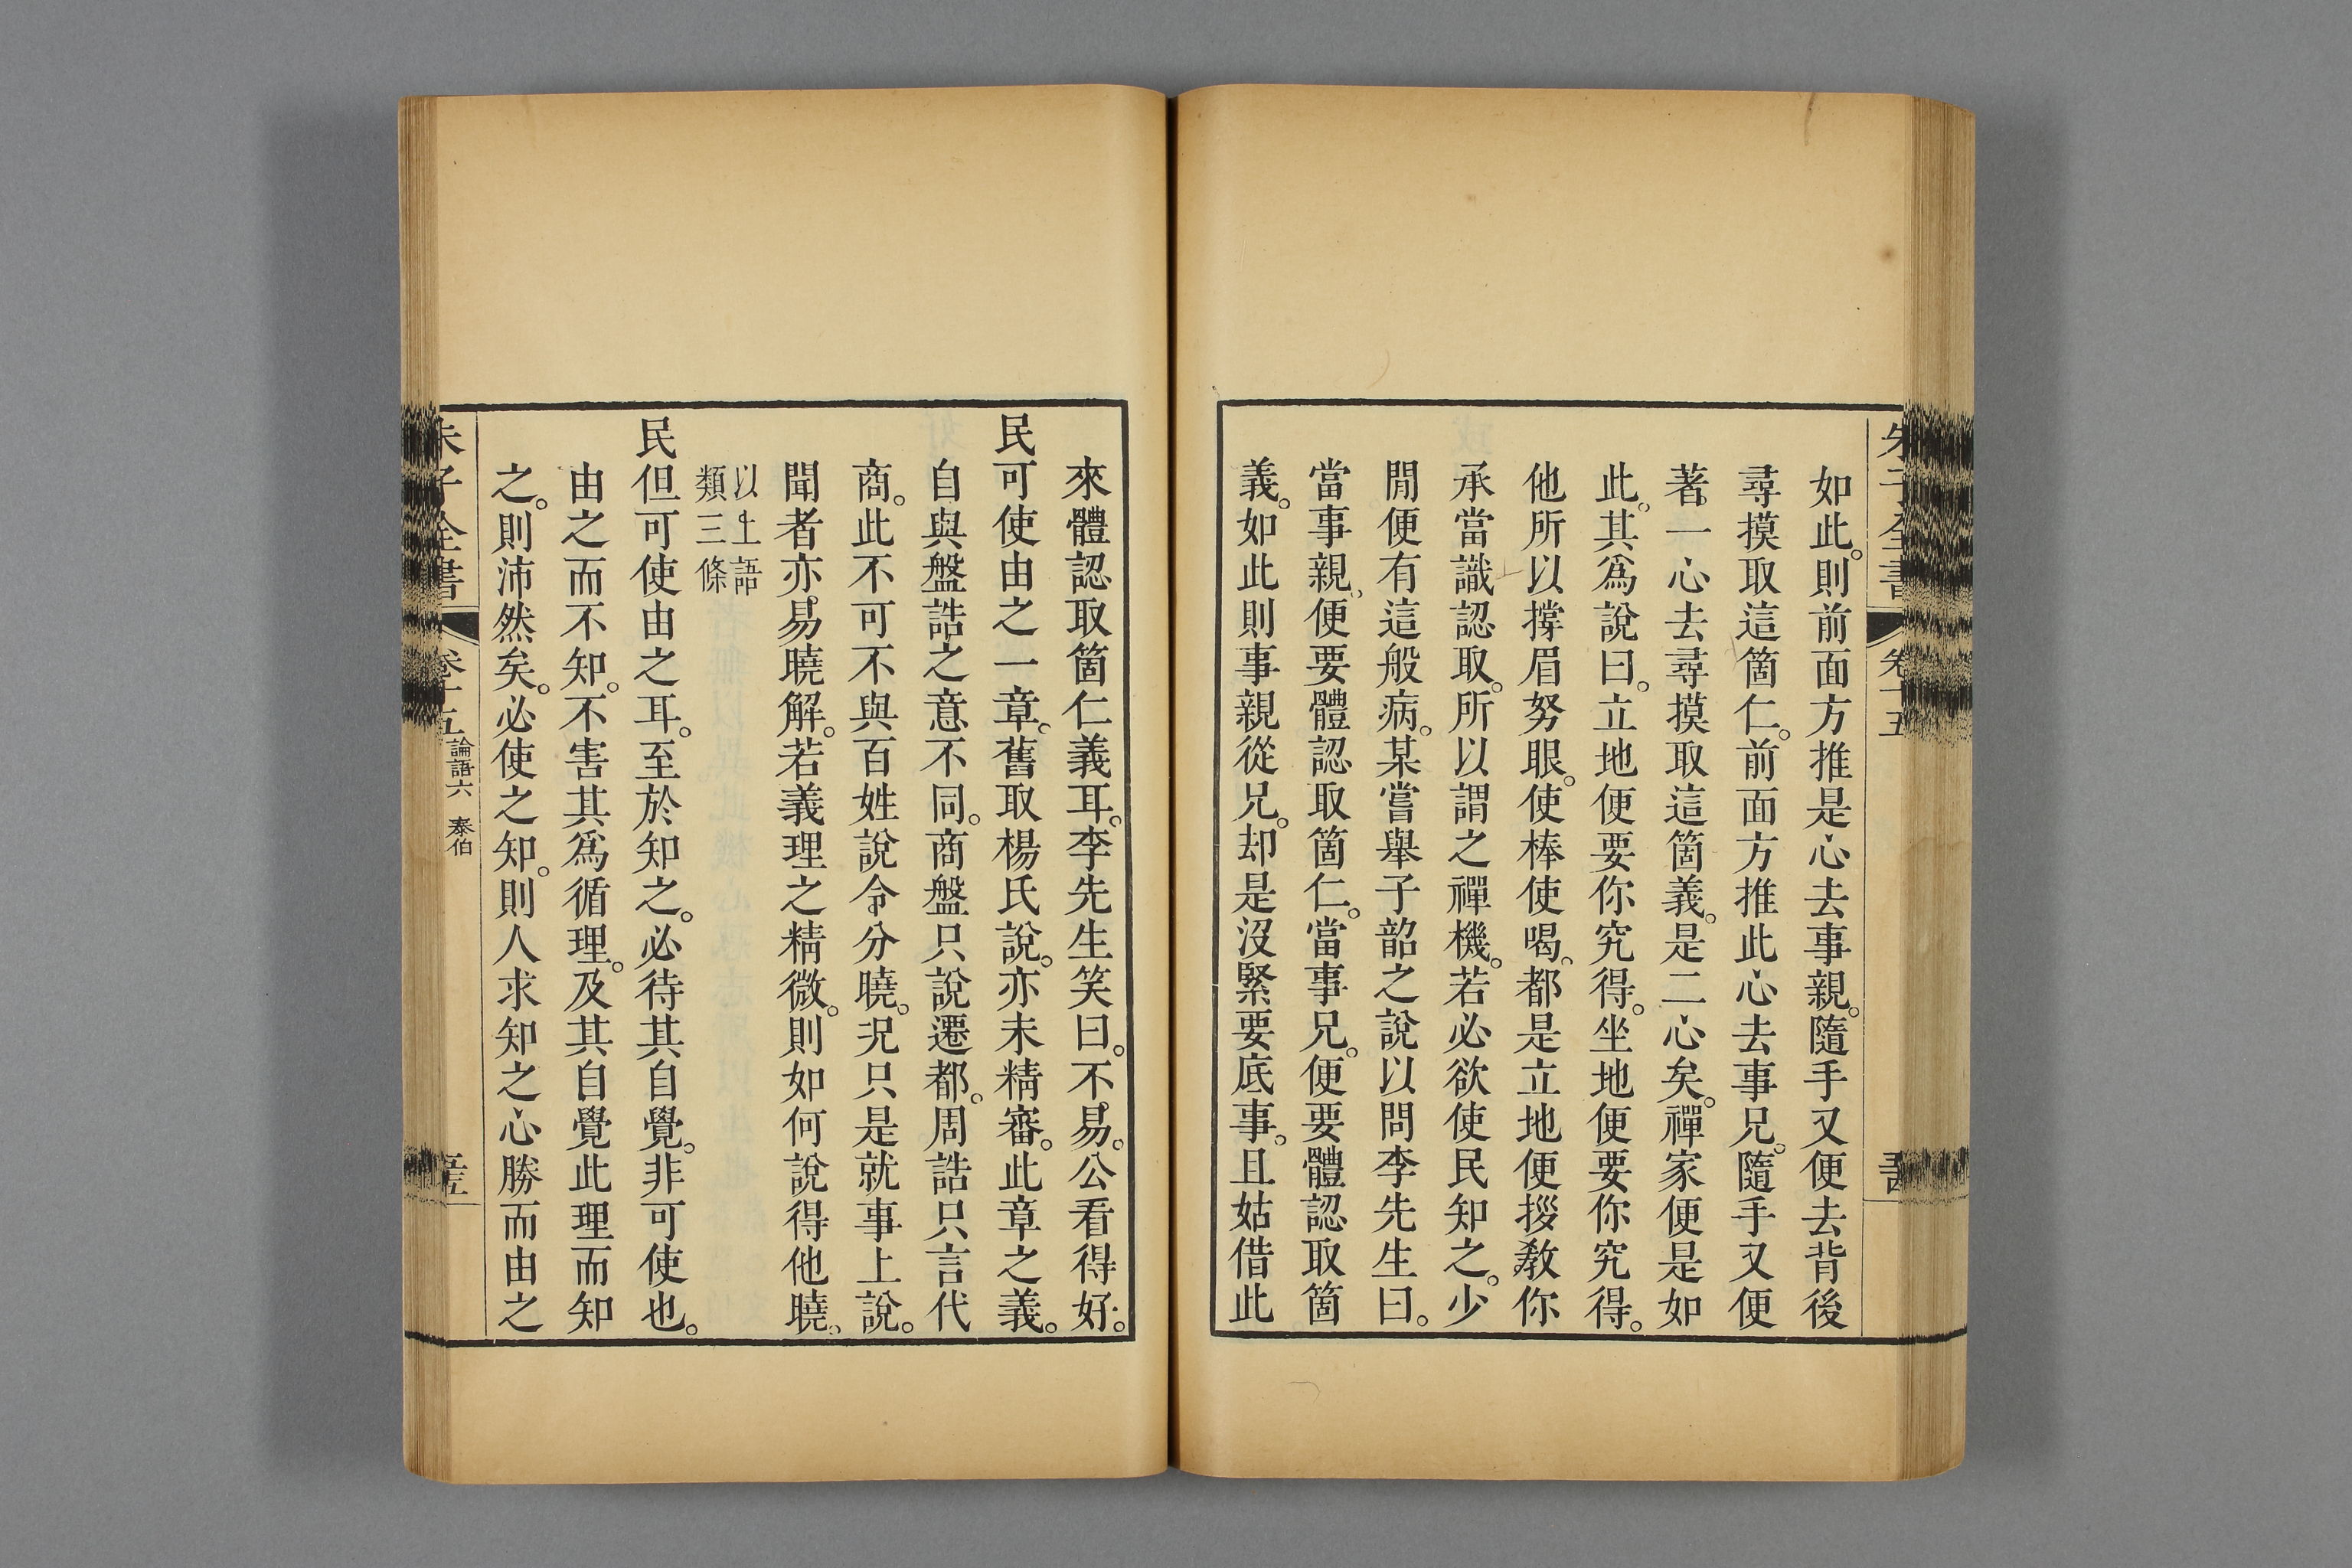 朱子全書 卷十五
如此。則前面方推是心去事親。隨手又便去背後
尋摸取這箇仁。前面方推此心去事兄。隨手又便
著一心去尋摸取這箇義。是二心矣。禪家便是如
此。其爲說曰。立地便要你究得。坐地便要你究得。
他所以撐眉努眼。使棒使喝。都是立地便拶敎你
承當識認取。所以謂之禪機。若必欲使民知之。少
閒便有這般病。某嘗舉子韶之說以問李先生曰。
當事親。便要體認取箇仁。當事兄。便要體認取箇
義。如此則事親從兄。却是沒緊要底事。且姑借此
來體認取箇仁義耳。李先生笑曰。不易。公看得好。
民可使由之一章。舊取楊氏說。亦未精審。此章之義。
自與盤誥之意不同。商盤只說遷都。周誥只言代
商。此不可不與百姓說令分曉。況只是就事上說。
聞者亦易曉解。若義理之精微。則如何說得他曉。
以上語
類三條
民但可使由之耳。至於知之。必待其自覺。非可使也。
由之而不知。不害其爲循理。及其自覺此理而知
之。則沛然矣。必使之知。則人求知之心勝而由之
朱子全書 卷十五 論語六 泰伯